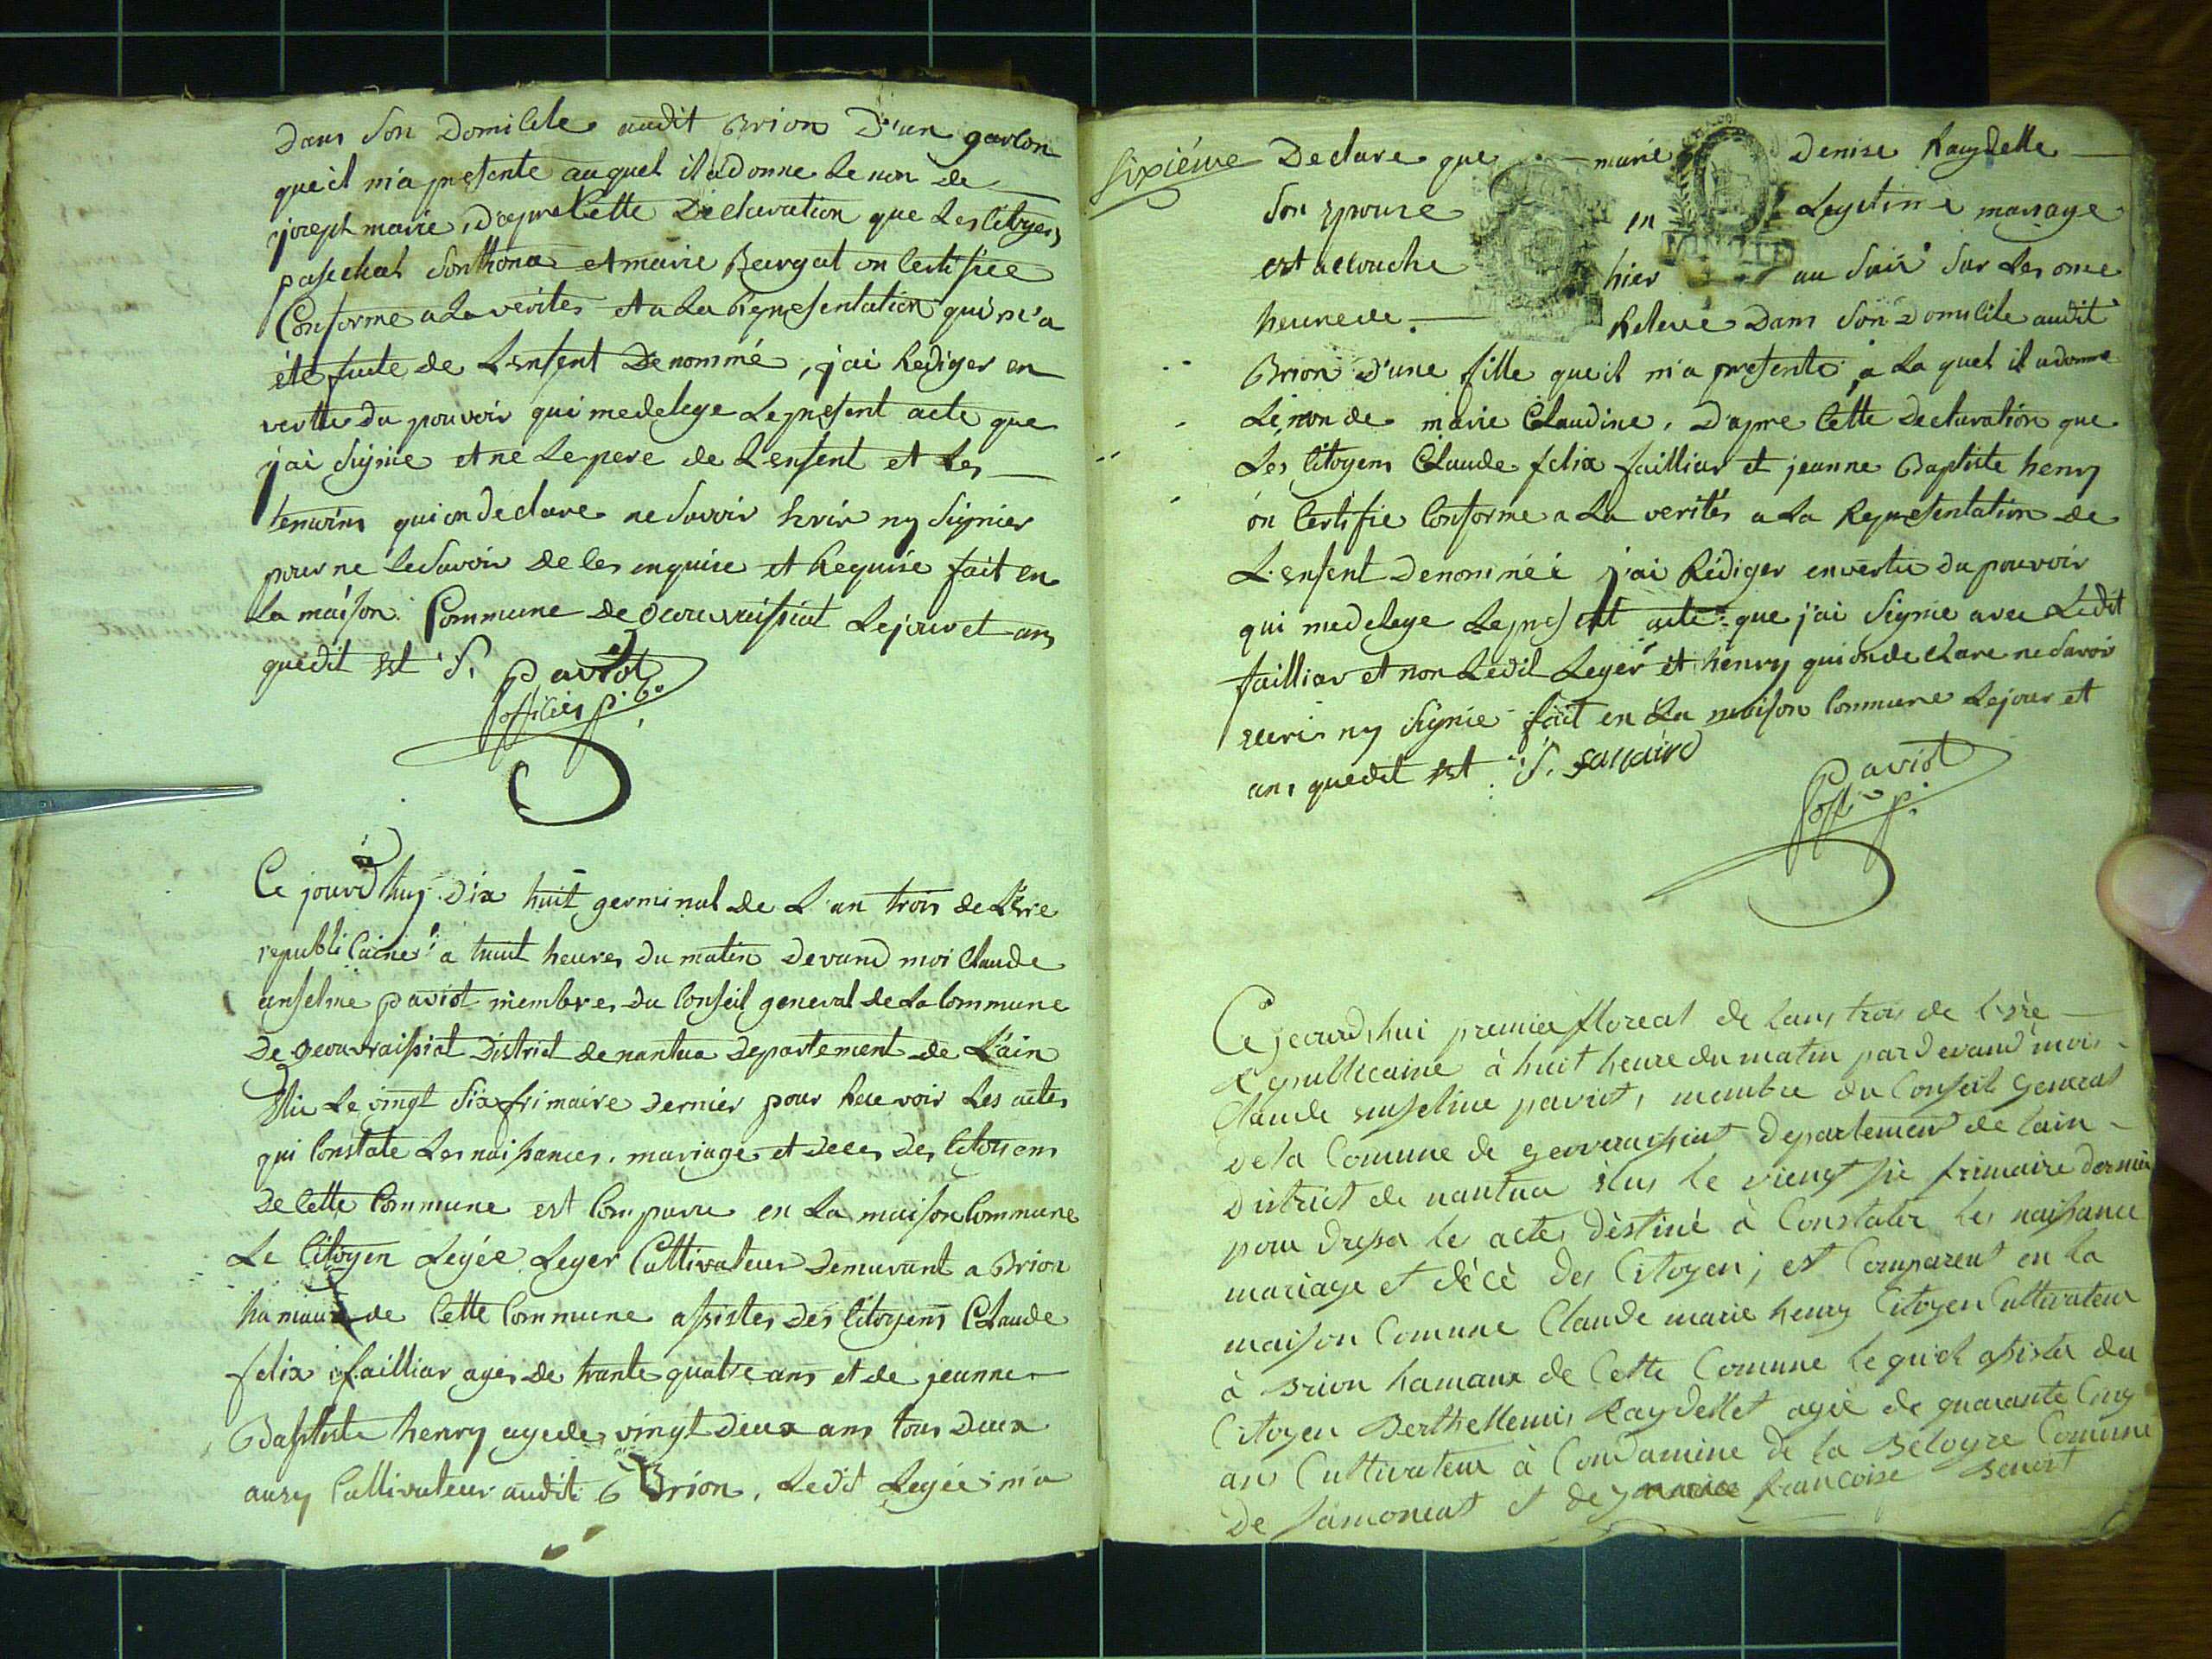 Dans son Domicile audit Brion D'un garcon
que il m'a presente auquel il a donne le non de
joseph marie, d'apre Cette Declaration que Les Citoyens
paschal Sonthona et marie Beirgat on Certifiée
Conforme a La verites et a La Representation qui m'a
été faite de L'ensent Denommé, j'ai Rediger en
verttu du pouvoir qui me delege Le present acte que
j'ai Signie et ne Le pere de L'ensent et Les
temoins qui on declare ne Savoir ny Signier
pour ne le Savoir de les enquise et Requise fait en
La maison Commune de Geouvraissiat Le jour et ans
que dit est S. Paviot
officier p. b.
Ce jourd'huy Dix huit germinal de L'an trois de L'ere
republicaine a huit heures Du matin Devand moi Claude
anselme paviot membres Du Conseil general de La Commune
De Geouvraissiat District de nantua Departement de L'ain
Elu Le vingt Six frimaire Dernier pour Recevoir Les actes
qui Constate Les naissances, mariage et Deces Des Citoiens
De Cette Commune est Comparu en La maison Commune
Le Citoyen Legée Leger Cultivateur Demurant a Brion
hamaux de Cette Commune assistes Des Citoyens Claude
felix failliar ages de trante quatre ans et de jeanne
Baptiste henry agede vingt Deux ans tous Deux
aussy Cultivateur audit Brion, Ledit Legée m'a
Sixiéme Declare que marie Denise Raydelle
Son Epouse en Legitime mariage
est accouche hier au Soir Sur Les onse
heure de Releve Dans Son Domicile audit
Brion d'une fille que il m'a presente, a La quel il a donne
Le non de marie Claudine, D'apre Cette Declaration que
Les Citoyens Claude felix failliar et jeanne Baptiste henry
on Certifie Conforme a La verités a La Representation de
L'ensent Denommée j'ai Rédiger en vertu du pouvoir
qui me delege Le present acte que j'ai Signie avec Ledit
failliar et non Ledit Leger et henry qui on declare ne Savoir
ecrire ny Signie fait en La maison Commune Le jour et
ans que dit est S. failliard
Paviot
off. p.
Ce jourdhui premier floreal de lans trois de l'ère
Republicaine à huit heure du matin pardevand moi
Claude enseline paviot, membre du Conseil general
de la Comune de geovreissiat departement de lain
District de nantua élus le vingt six frimaire dernier
pour dresser les actes déstiné à Constater les naissance
mariage et décè des Citoyen; est Comparent en la
maison Comune Claude marie henry Citoyen Cultivateur
à Brion hamaux de Cette Comune lequel assister du
Citoyen Berthellemis Raydellet agié de quarante Cinq
ans Cultivateur à Condamine de la Beloyre Comune
De Samoneat et de francoise Benoit